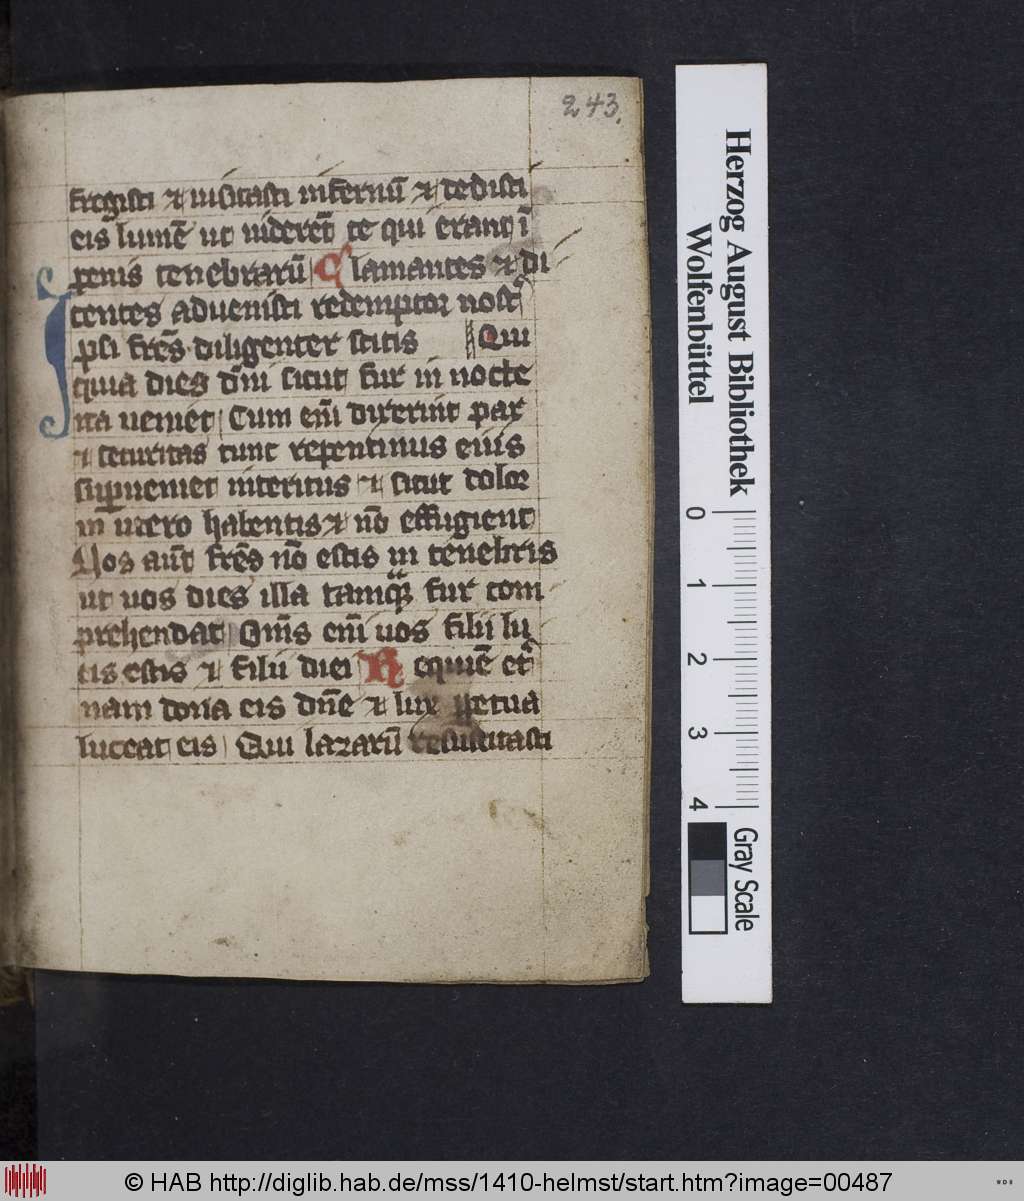 243.
fregisti ⁊ uisitasti infernū ⁊ dedisti
eis lumē ut uiderēt te qui erant ī
penis tenebrarū Clamantes ⁊ di
centes aduenisti redemptor nost̄
Ipsi frēs diligenter scitis Qui
quia dies dn̄i sicut fur in nocte
ita ueniet Cum eni᷒ dixerint pax
⁊ securitas tunc repentinus eius
suꝑueniet interitus ⁊ sicut dolor
in utero habentis ⁊ nō effugient
Uos aūt frēs nō estis in tenebris
ut uos dies illa tamqᷓ fur com
prehendat Om̄s eni᷒ uos filii lu
cis estis ⁊ filii diei Requiē et̄
nam dona eis dn̄e ⁊ lux ꝑpetua
luceat eis Qui lazarū resuscitasti
Herzog August Bibliothek
Wolfenbüttel
0 1 2 3 4
Gray Scale
© HAB http://diglib.hab.de/mss/1410-helmst/start.htm?image=00487